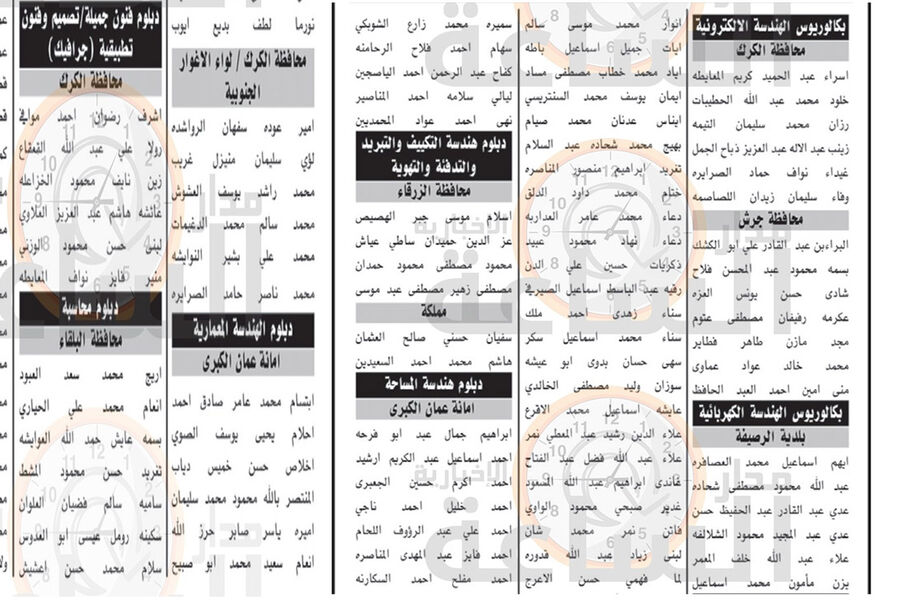 بكالوريوس الهندسة الالكترونية
محافظة الكرك
اسراء عبد الحميد كريم المعايطه
خلود محمد عبد الله الحطيبات
رزان محمد سليمان التيمه
زينب عبد الاله عبد العزيز ذباح الجمل
غيداء نواف حماد الصرايره
وفاء سليمان زيدان اللصاصمه
محافظة جرش
البراءبن عبد القادر علي ابو الكشك
بسمه محمود عبد المحسن فلاح
شادى حسن يونس العزه
عكرمه رفيفان مصطفى عتوم
مجد مازن طاهر قطاير
محمد خالد عواد عماوى
منى امين احمد العبد الحافظ
بكالوريوس الهندسة الكهربائية
بلدية الرصيفة
ايهم اسماعيل محمد العصافره
عبد الله محمود مصطفى شحاده
عدي عبد القادر عبد الحفيظ حسن
عدي عبد المجيد محمود الشلالفه
علاء عبد الله خلف المعمر
يزن مأمون محمد اسماعيل
انوار محمد موسى سالم
ايات جميل اسماعيل باطه
اياد محمد خطاب مصطفى مساد
ايمان يوسف محمد السنتريسي
ايناس عدنان محمد صيام
بهيج محمد شحاده عبد السلام
تغريد ابراهيم منصور المناصره
ختام محمد داود الدلق
دعاء محمد عامر العداربه
دعاء نهاد محمود عبيد
ذكريات حسين علي الدن
رقيه عبد الباسط اسماعيل الصيرفي
سناء زهدى احمد ملك
سناء محمد اسماعيل سكر
سهى حسان بدوى ابو عيشه
سوزان وليد مصطفى الخالدي
عايشه اسماعيل محمد الاقرع
علاء الدين رشيد عبد المعطي نمر
علاء عبد الله فضل عبد الفتاح
غاندى ابراهيم عبد الله المسعود
غدير صبحي محمود الواوي
فاتن نمر محمد شان
لبنى زياد عبد الله قدوره
لما فهمي حسن الاعرج
سميره محمد زارع الشوبكي
سهام احمد فلاح الرحامنه
كفاح عبد الرحمن احمد الياسجين
ليالي سلامه احمد المناصير
نهى احمد عواد المحمديين
دبلوم هندسة التكييف والتبريد
والتدفئة والتهوية
محافظة الزرقاء
اسلام موسى جبر الهصيص
عز الدين حميدان ساطي عياش
محمود مصطفى محمود حمدان
مصطفى زهير مصطفى عبد موسى
مملكة
سفيان حسني صالح العثمان
هاشم محمد احمد السعيدين
دبلوم هندسة المساحة
امانة عمان الكبرى
ابراهيم جمال عبد ابو فرحه
احمد اسماعيل عبد الكريم ارشيد
احمد اكرم حسين الجعبري
احمد خليل احمد ناجي
احمد علي عبد الرؤوف اللحام
احمد فايز عبد المهدى المناصره
احمد مفلح احمد السكارنه
نورما لطف بديع ايوب
محافظة الكرك / لواء الاغوار
الجنوبية
امير عوده سفهان الرواشده
لؤي سليمان منيزل غريب
محمد راشد يوسف العشوش
محمد سالم محمد الدغيمات
محمد علي بشير النوايشه
محمد ناصر حامد الصرايره
دبلوم الهندسة المعمارية
امانة عمان الكبرى
ابتسام محمد عامر صادق احمد
احلام يحيى يوسف الصوي
اخلاص حسن خميس دياب
المنتصر بالله محمود محمد سليمان
اميره ياسر صابر حرز الله
انعام سعيد محمد ابو صبيح
دبلوم فنون جميلة/تصميم وفنون
تطبيقية (جرافيك)
محافظة الكرك
اشرف رضوان احمد موافي
رولا علي عبد الله القعقاع
زين نايف محمود الخزاعله
عائشه هاشم عبد العزيز العلاوي
لبنى حسن محمود الوزني
منير فايز نواف المعايطه
دبلوم محاسبة
محافظة البلقاء
اريج محمد سعد العبود
انعام محمد علي الحياري
بسمه عايش حمد الله العوايشه
تغريد حسن محمود المشط
ساميه سالم فضيان العلوان
سكينه رومل عيسى ابو العدوس
سلام محمد حسن اعشيش